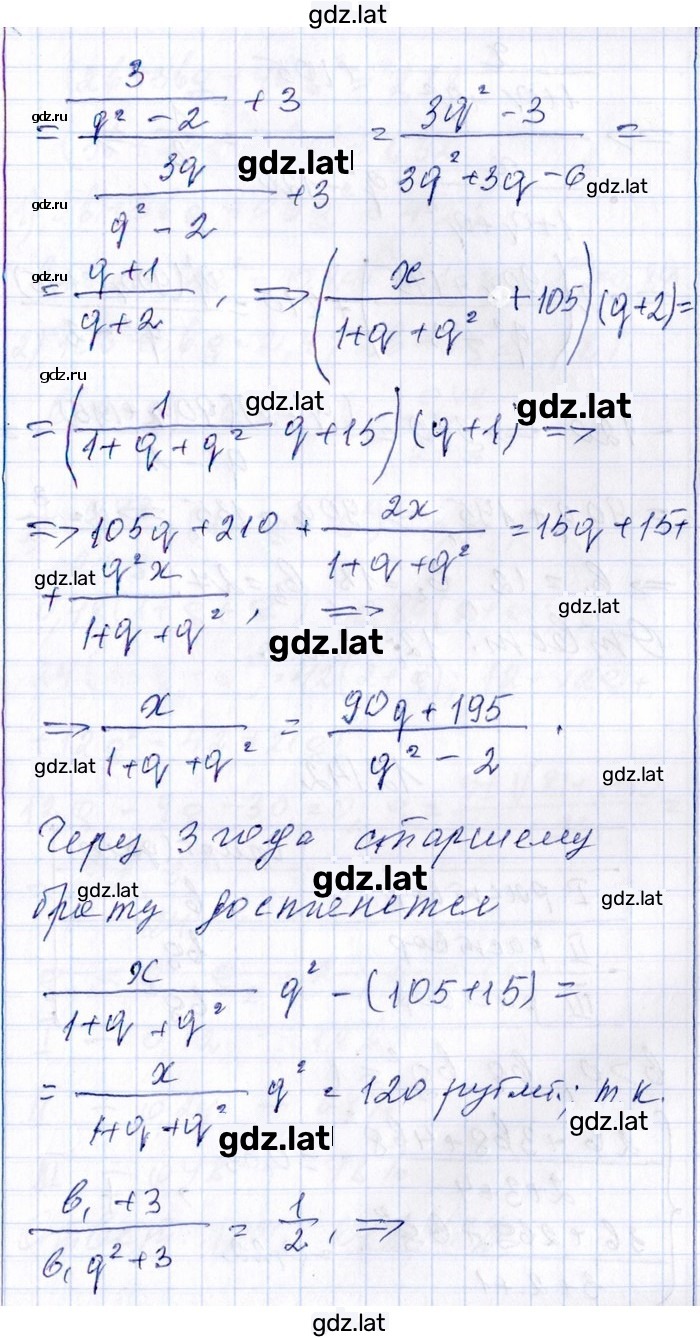 gdz.lat
= (3/(q² - 2) + 3)/(3q/(q² - 2) + 3) = (3q² - 3)/(3q² + 3q - 6) =
gdz.ru
gdz.lat
gdz.lat
gdz.ru
gdz.ru
= (q + 1)/(q + 2), => (x/(1 + q + q²) + 105)(q + 2) =
gdz.ru
gdz.lat
gdz.lat
= (1/(1 + q + q²) q + 15)(q + 1) =>
=> 105q + 210 + 2x/(1 + q + q²) = 15q + 15 +
gdz.lat
gdz.lat
+ q²x/(1 + q + q²), =>
gdz.lat
=> x/(1 + q + q²) = (90q + 195)/(q² - 2).
gdz.lat
gdz.lat
Через 3 года старшему
gdz.lat
gdz.lat
gdz.lat
брату достанется
x/(1 + q + q²) q² - (105 + 15) =
= x/(1 + q + q²) q² - 120 рублей; т.к.
gdz.lat
gdz.lat
(b₁ + 3)/(b₁q² + 3) = 1/2, =>
gdz.lat